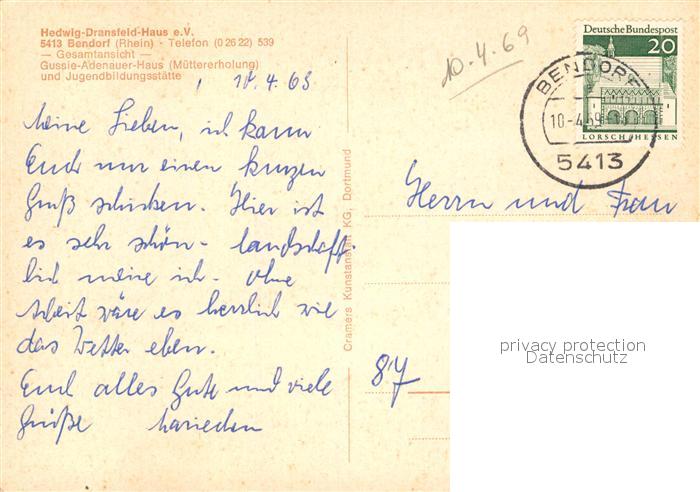 Hedwig-Dransfeld-Haus e.V.
5413 Bendorf (Rhein) · Telefon (0 26 22) 539
— Gesamtansicht —
Gussie-Adenauer-Haus (Müttererholung)
und Jugendbildungsstätte
10.4.69
Meine Lieben, ich kann
Euch nur einen kurzen
Gruß schicken. Hier ist
es sehr schön - landschaft-
lich meine ich - ohne
Arbeit wäre es herrlich wie
das Wetter eben.
Euch alles Gute und viele
Grüße
Cramers Kunstanstalt KG, Dortmund
10.4.69
Deutsche Bundespost
20
LORSCH/HESSEN
BENDORF
10-4.69
5413
Herrn und Frau
87
privacy protection
Datenschutz